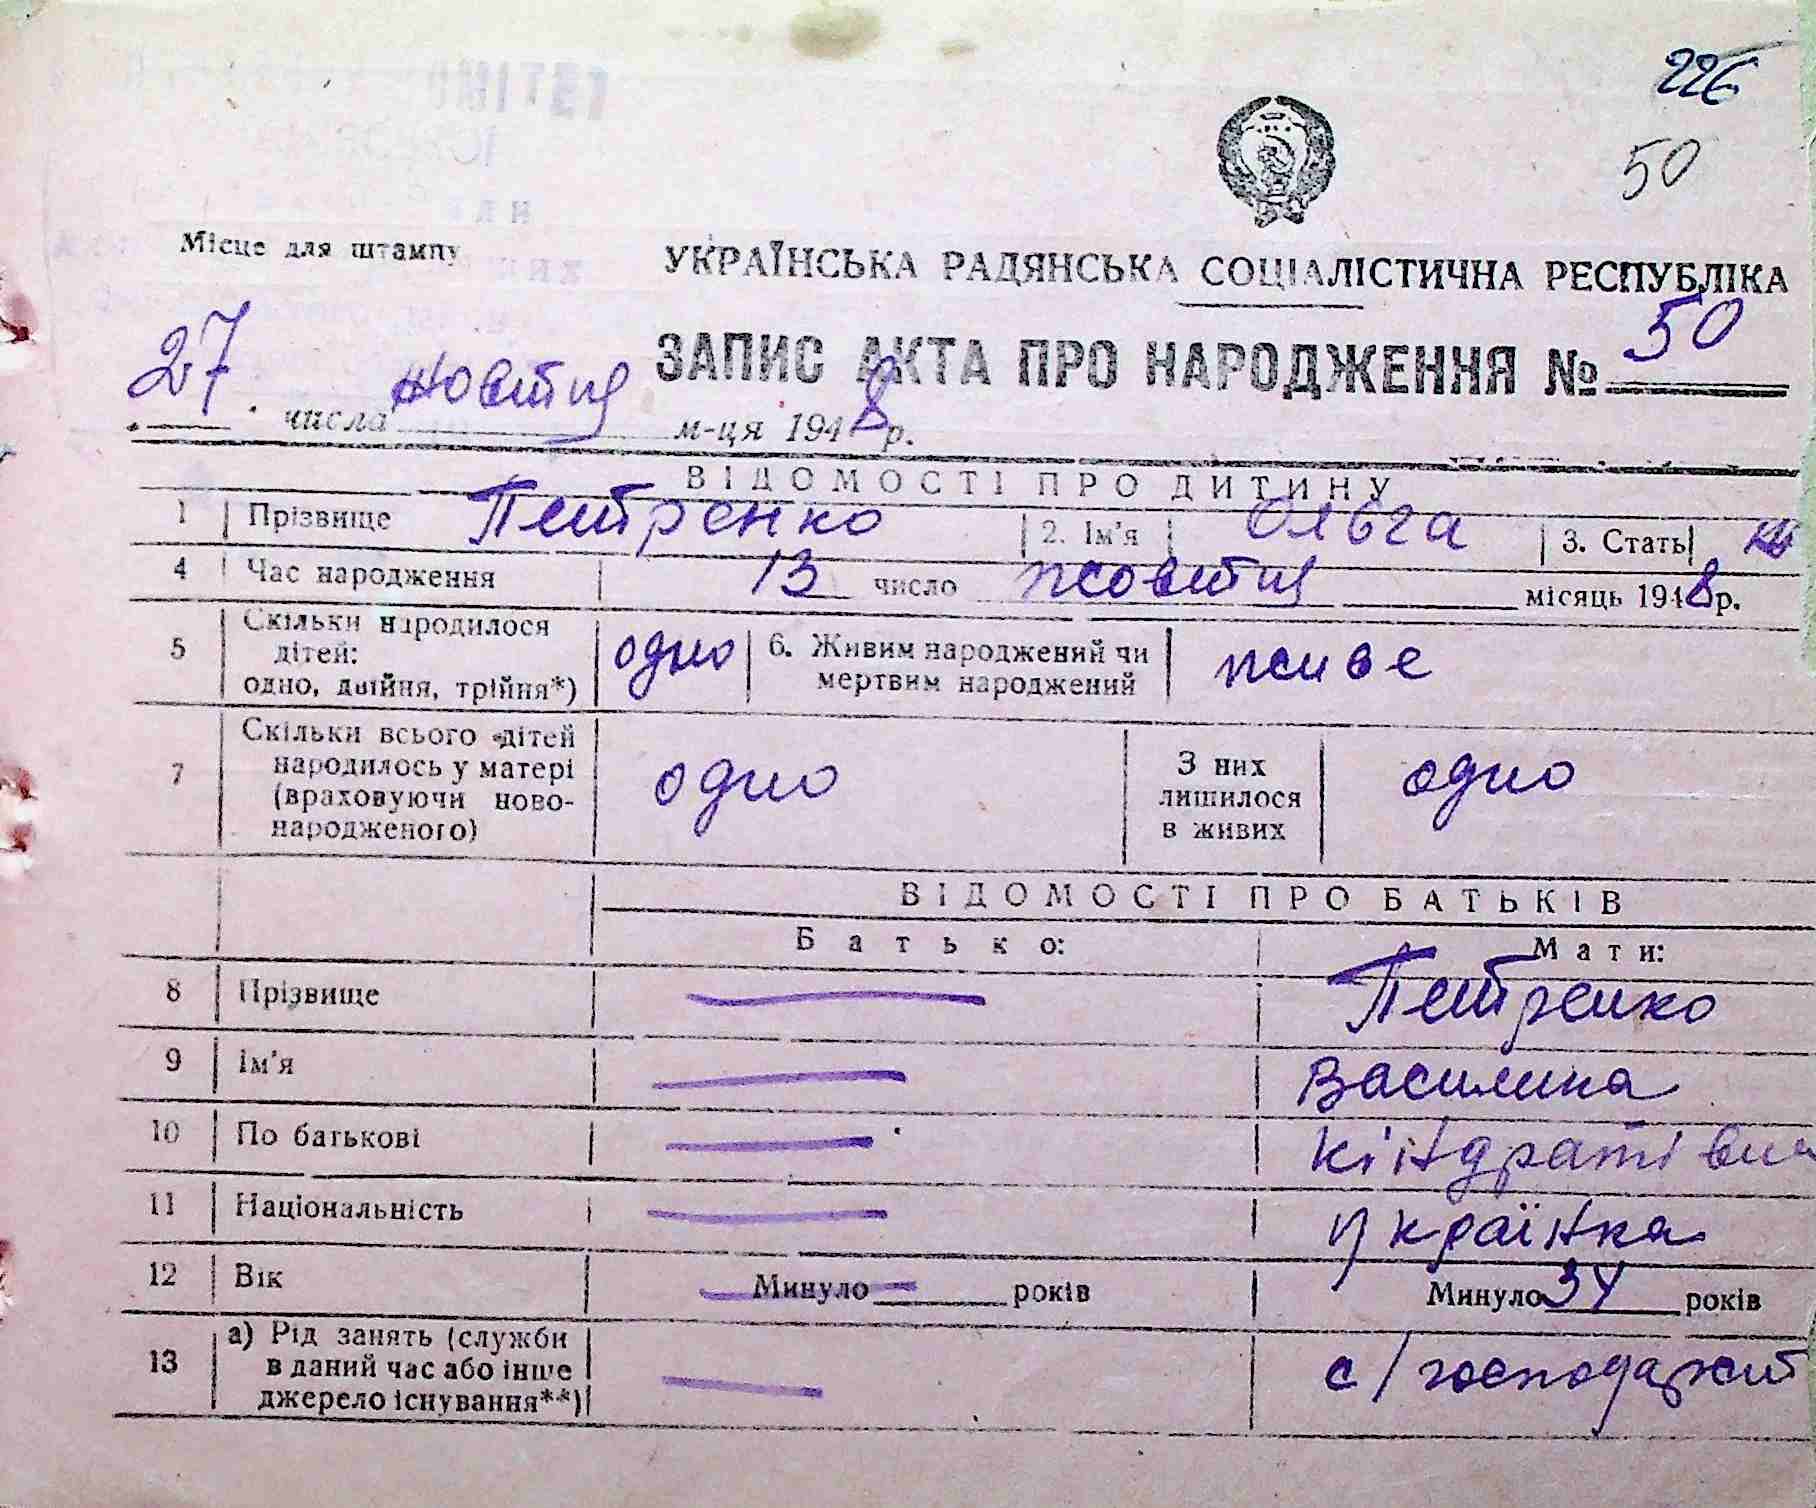 226
50
Місце для штампу
УКРАЇНСЬКА РАДЯНСЬКА СОЦІАЛІСТИЧНА РЕСПУБЛІКА
ЗАПИС АКТА ПРО НАРОДЖЕННЯ № 50
27 числа жовтня м-ця 1948 р.
ВІДОМОСТІ ПРО ДИТИНУ
1 Прізвище Петренко 2. Ім'я Ольга 3. Стать ж
4 Час народження 13 число жовтня місяць 1948 р.
5 Скільки народилося дітей: одно, двійня, трійня*) одно 6. Живим народжений чи мертвим народжений живе
7 Скільки всього дітей народилось у матері (враховуючи ново-народженого) одно З них лишилося в живих одно
ВІДОМОСТІ ПРО БАТЬКІВ
Батько: Мати:
8 Прізвище — Петренко
9 Ім'я — Василина
10 По батькові — Кіндратівна
11 Національність — українка
12 Вік — Минуло — років Минуло 34 років
13 а) Рід занять (служби в даний час або інше джерело існування**) — с/господарст